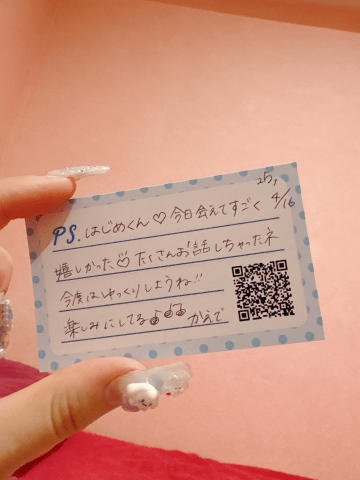 25,
4/16
PS. はじめくん♡今日会えてすごく
嬉しかった♡たくさんお話しちゃったネ
今度はゆっくりしようね!!
楽しみにしてる♪♫ かえで